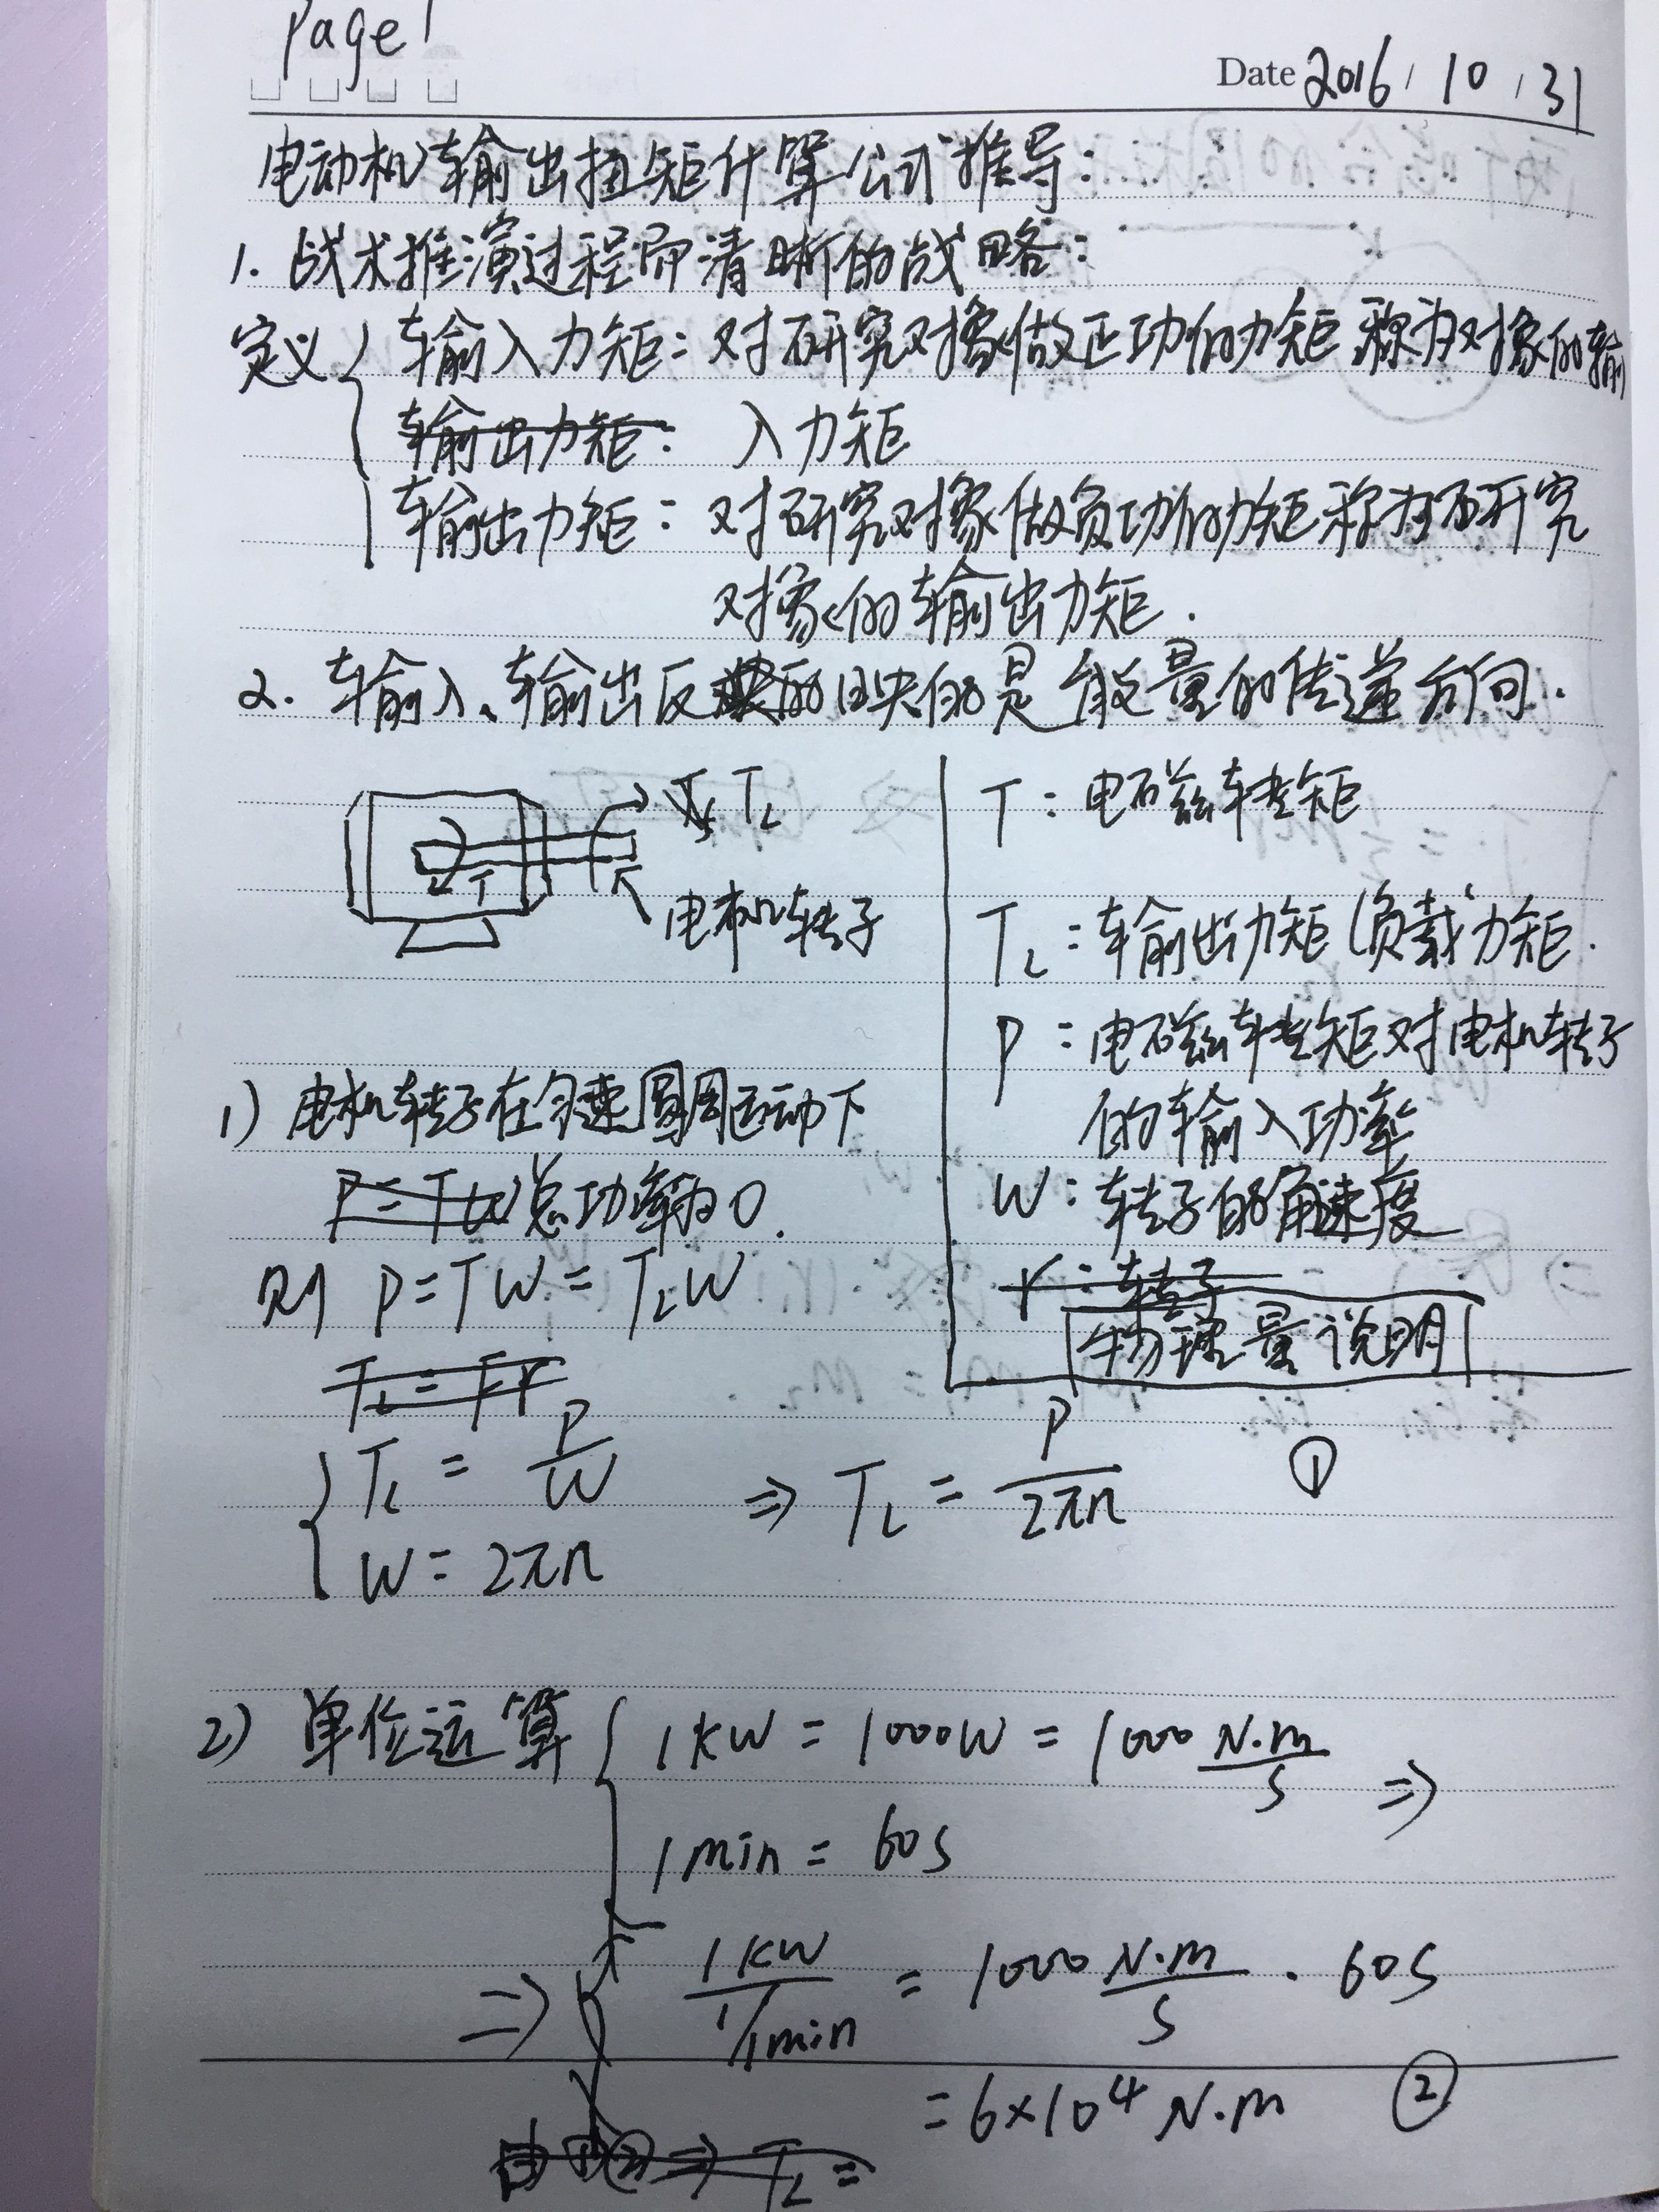 Page 1
Date 2016 / 10 / 31
电动机输出扭矩计算公式推导:
1. 战术推演过程而清晰的战略:
定义 { 输入力矩: 对研究对象做正功的力矩称为对象的输
输出力矩: 入力矩
输出力矩: 对研究对象做负功的力矩称为研究
对象的输出力矩.
2. 输入、输出反映的是能量的传递方向.
T_L
T
电机转子
T: 电磁转矩
T_L: 输出力矩(负载力矩.
P: 电磁转矩对电机转子
的输入功率
W: 转子的角速度
r: 转子
物理量说明
1) 电机转子在匀速圆周运动下
P=TW 总功率为0.
则 P=TW=T_LW
T_L=Fr
{ T_L = P/W ⇒ T_L = P/2πn ①
W=2πn
2) 单位运算 { 1KW = 1000W = 1000 N·m/S ⇒
1min = 60s
⇒ 1KW / 1/1min = 1000 N·m/S · 60S
= 6×10⁴ N·m ②
由①② ⇒ T_L =